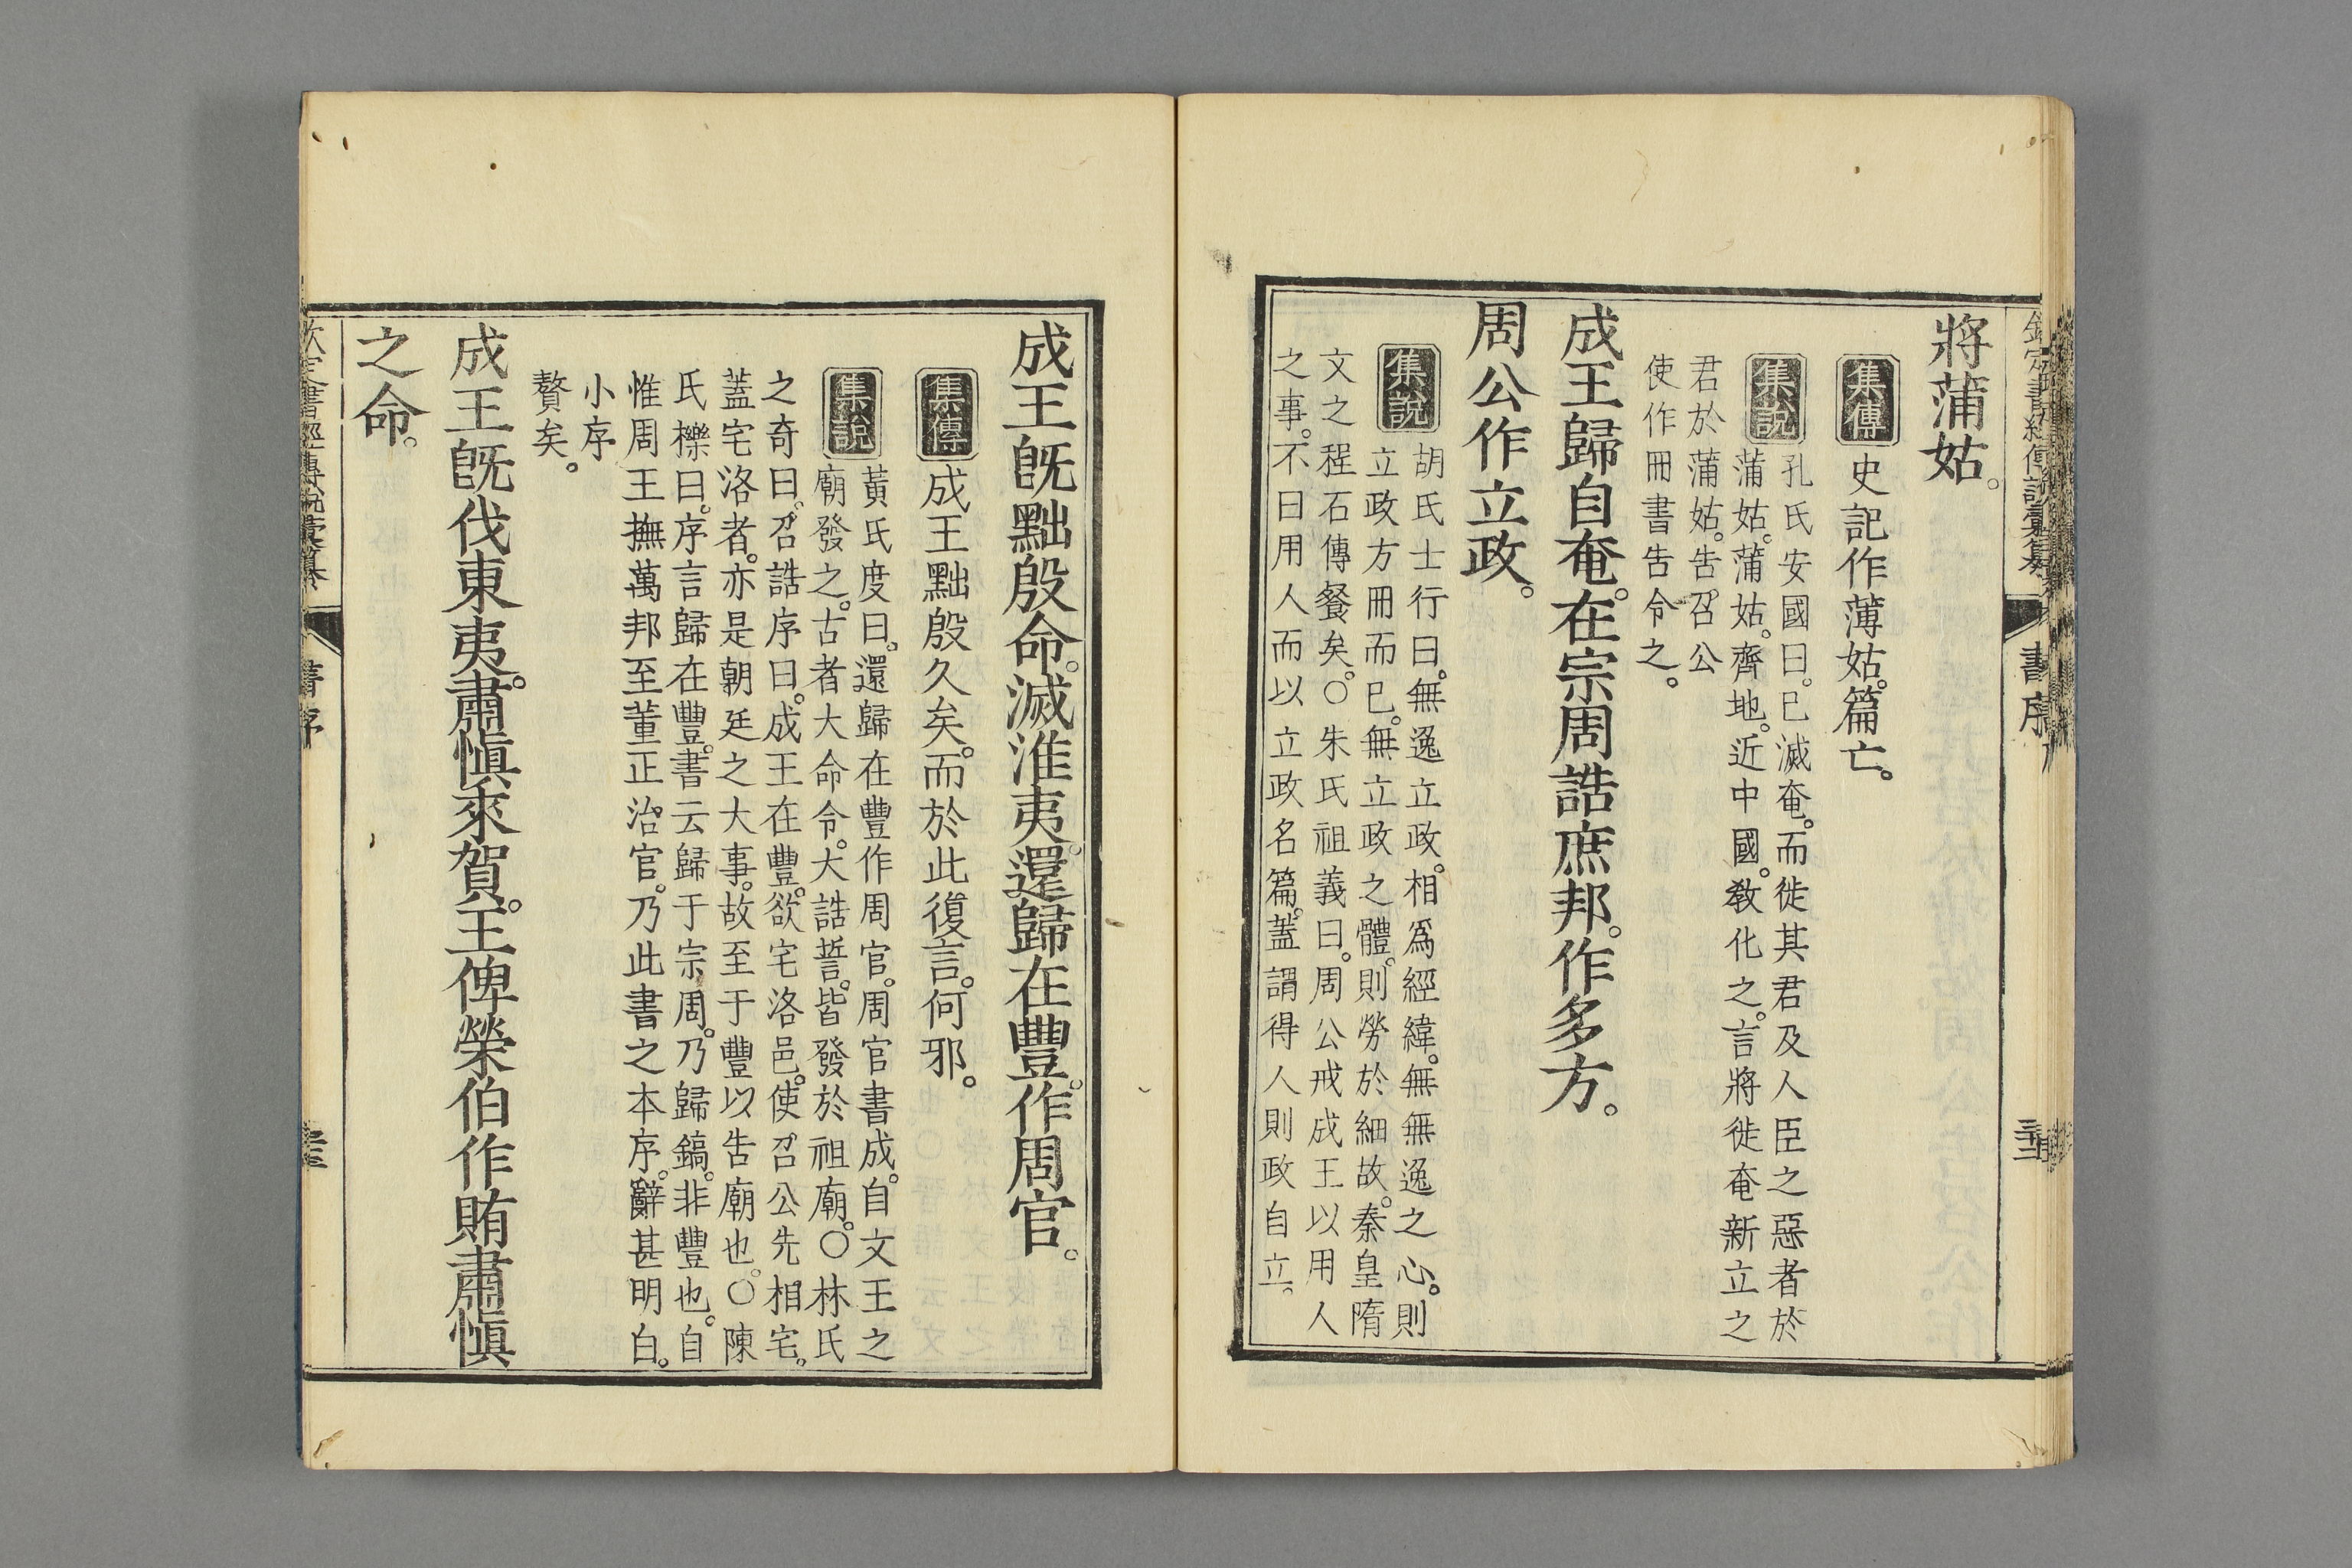 將蒲姑。
集傳 史記作薄姑。篇亡。
集說 孔氏安國曰。已滅奄。而徙其君及人臣之惡者於
蒲姑。蒲姑。齊地。近中國。教化之。言將徙奄新立之
君於蒲姑。告召公
使作冊書告令之。
成王歸自奄。在宗周誥庶邦。作多方。
周公作立政。
集說 胡氏士行曰。無逸立政。相為經緯。無無逸之心。則
立政方冊而已。無立政之體。則勞於細故。秦皇隋
文之程石傳餐矣。○朱氏祖義曰。周公戒成王以用人
之事。不曰用人而以立政名篇。蓋謂得人則政自立。
成王既黜殷命。滅淮夷。還歸在豐。作周官。
集傳 成王黜殷久矣。而於此復言。何邪。
集說 黃氏度曰。還歸在豐作周官。周官書成。自文王之
廟發之。古者大命令。大誥誓。皆發於祖廟。○林氏
之奇曰。召誥序曰。成王在豐。欲宅洛邑。使召公先相宅。
蓋宅洛者。亦是朝廷之大事。故至于豐以告廟也。○陳
氏櫟曰。序言歸在豐。書云歸于宗周。乃歸鎬。非豐也。自
惟周王撫萬邦至董正治官。乃此書之本序。辭甚明白。
小序
贅矣。
成王既伐東夷。肅慎來賀。王俾榮伯作賄肅慎
之命。
欽定書經傳說彙纂
書序